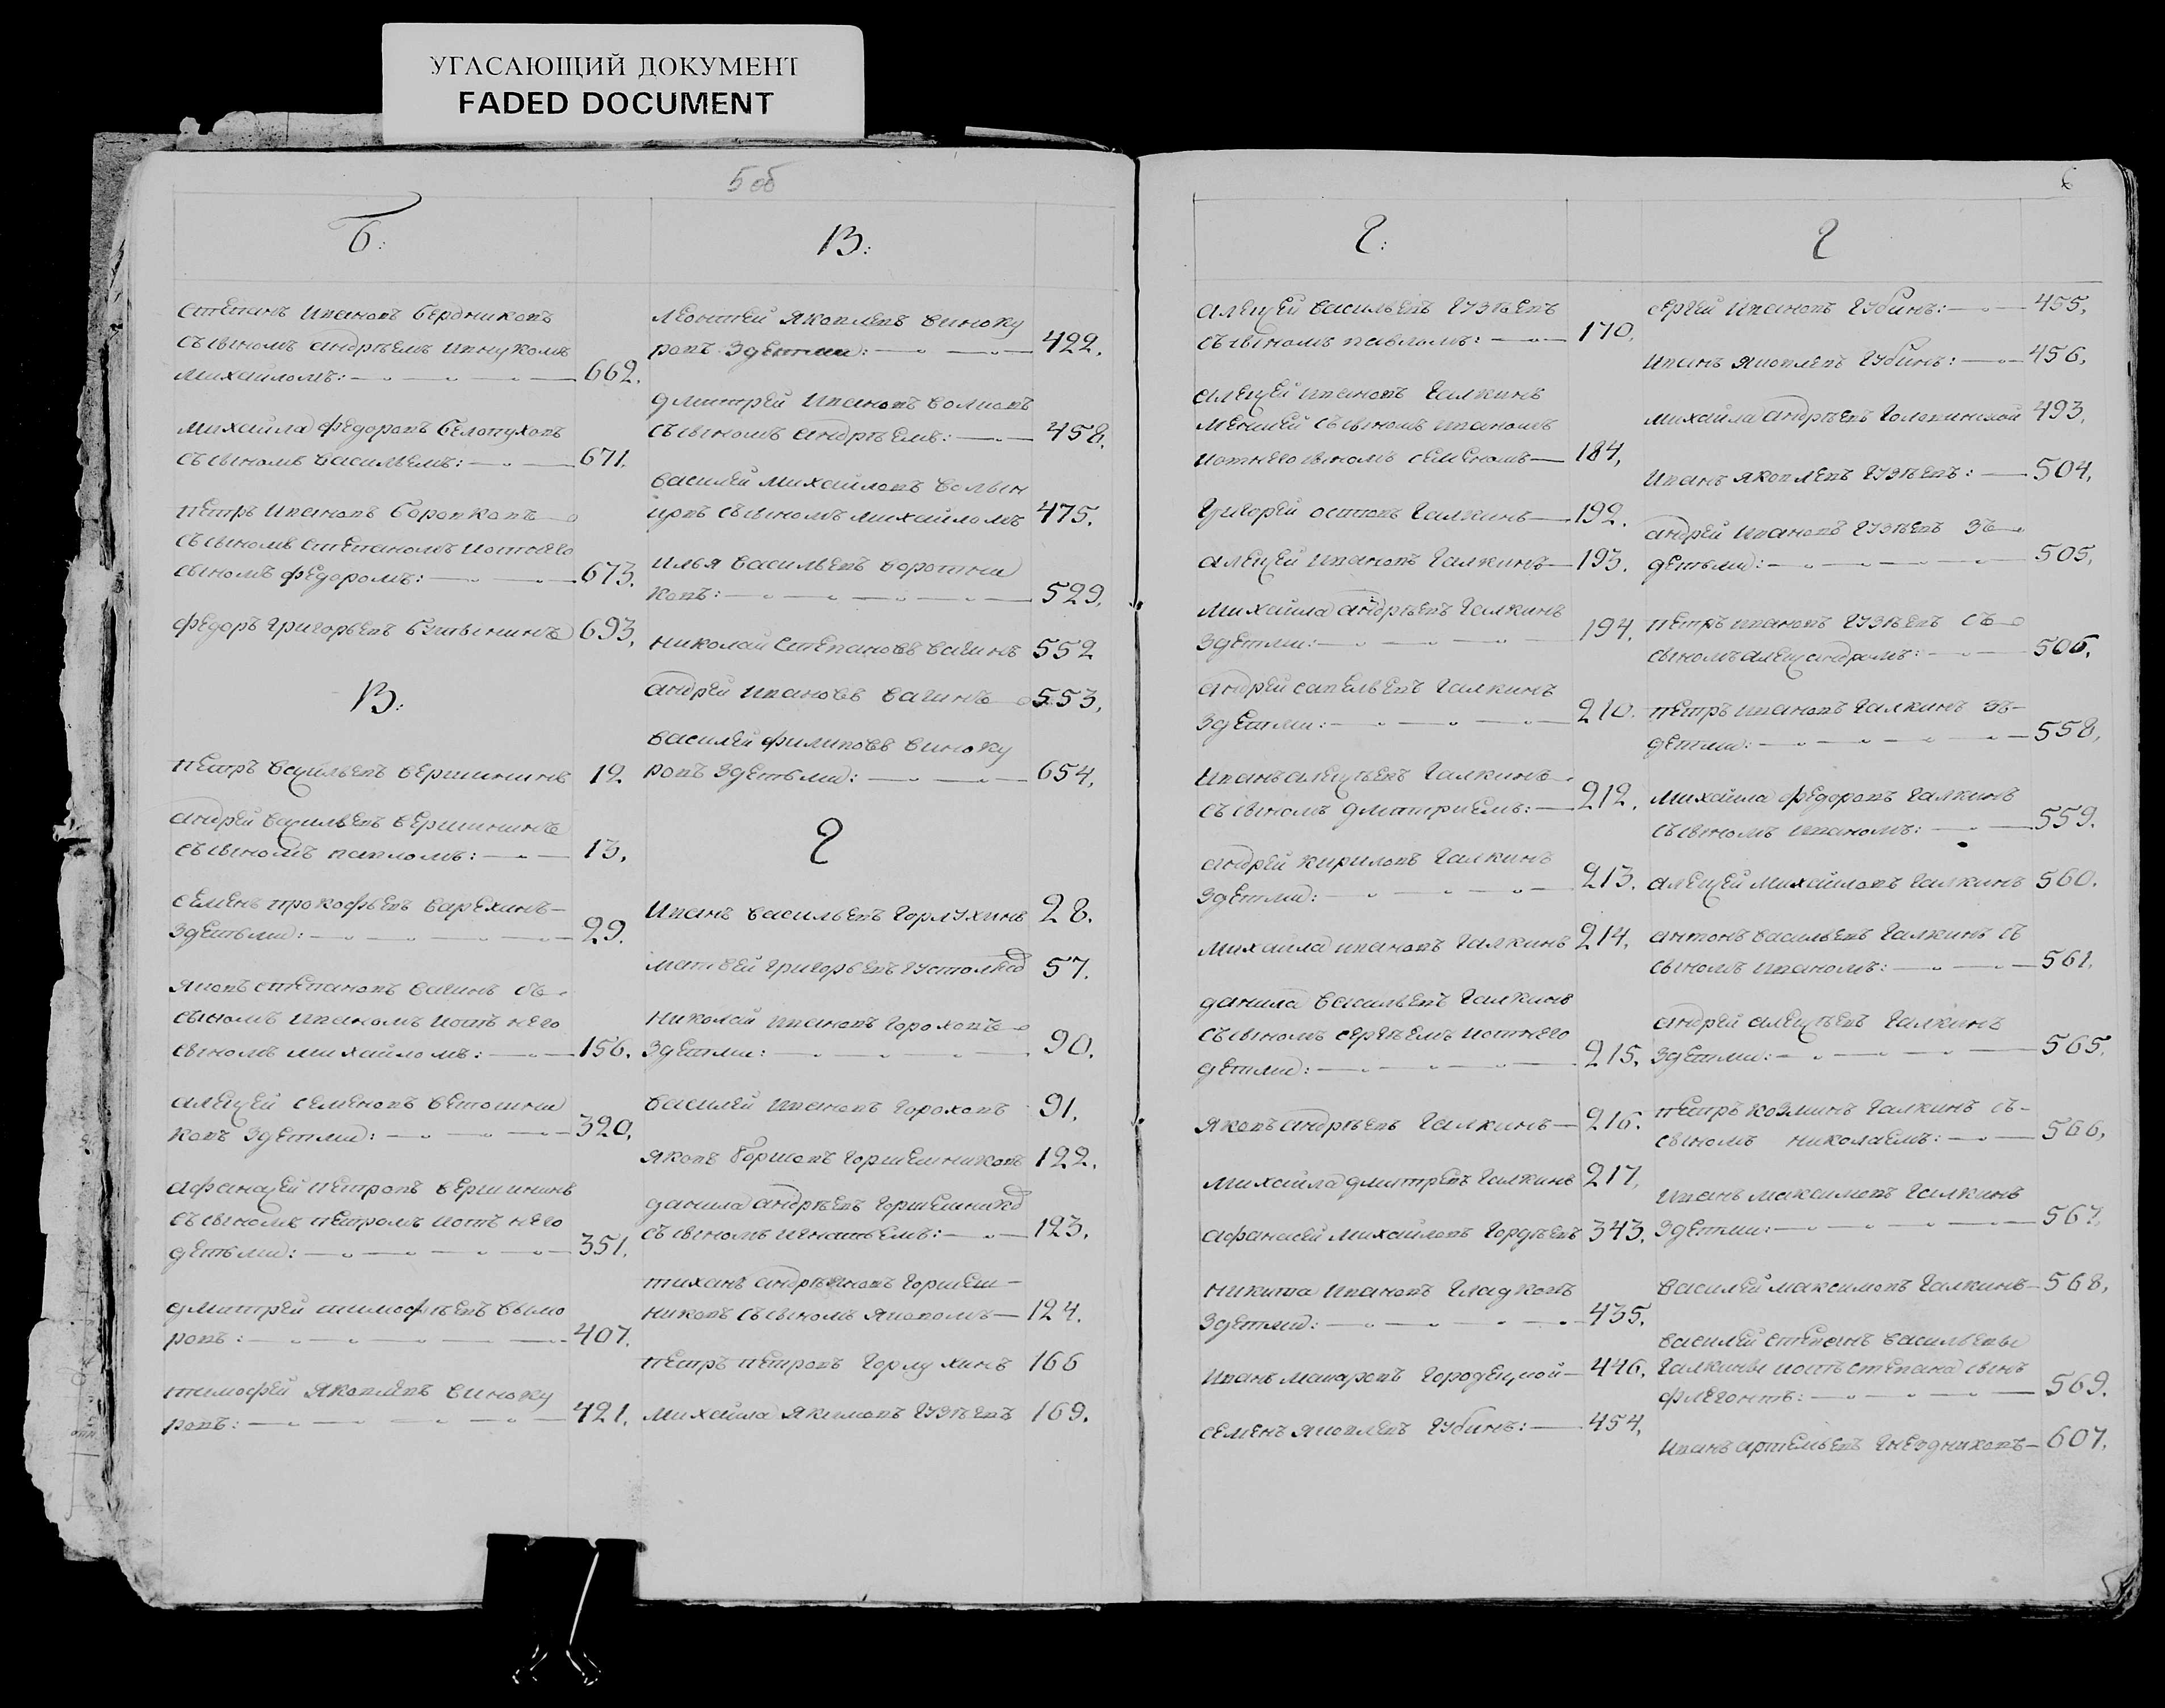 УГАСАЮЩИЙ ДОКУМЕНТ
FADED DOCUMENT
5 об
Б:
Степанъ Ивановъ Бердниковъ
съ сыномъ андрѣемъ ивнукомъ
михайломъ: 662.
михайла Федоровъ Белопуховъ
съ сыномъ васильемъ: 671.
петръ Ивановъ Боровковъ
съ сыномъ степаномъ иотнего
сыномъ федоромъ: 673.
федоръ григорьевъ 693.
В:
петръ васильевъ вершининъ 12
андрей васильевъ вершининъ
съ сыномъ павломъ: 13.
семенъ прокофьевъ варехинъ
здетьми: 29.
яковъ степановъ вагинъ съ
сыномъ иваномъ иотъ него
сыномъ михайломъ: 156.
алексей семеновъ ветошни
ковъ здетми: 320.
афанасей петровъ вершининъ
съ сыномъ петромъ иотъ него
детьми: 351.
дмитрей тимофѣевъ вымо
ровъ: 407.
тимофей яковлевъ виноку
ровъ: 421.
В:
леонтей яковлевъ виноку
ровъ здетми: 422.
дмитрей ивановъ волковъ
съ сыномъ андрѣемъ: 458.
василей михайловъ волын
цовъ съ сыномъ михайломъ 475.
илья васильевъ воротни
ковъ: 529.
николай степановъ вагинъ 552
андрей ивановъ вагинъ 553.
василей филиповъ виноку
ровъ здетьми: 654.
Г
Иванъ васильевъ горлухинъ 28.
матвей григорьевъ 57.
николай ивановъ гороховъ
здетми: 90.
василей ивановъ гороховъ 91.
яковъ борисовъ горшешниковъ 122.
данила андрѣевъ горшешников
съ сыномъ игнатьемъ: 123.
тиханъ андрѣяновъ горшеш-
никовъ съ сыномъ яковомъ 124.
петръ петровъ горлухинъ 166
михайла якимовъ гузѣевъ 169.
6
Г:
алексей васильевъ гузѣевъ
съ сыномъ павломъ: 170.
алексей ивановъ галкинъ
меншей съ сыномъ иваномъ
иотнего сыномъ семеномъ 184.
григорей осиповъ галкинъ 192.
алексей ивановъ галкинъ 193.
михайла андрѣевъ галкинъ
здетми: 194.
андрей савельевъ галкинъ
здетми: 210.
иванъ алексѣевъ галкинъ
съ сыномъ дмитриемъ: 212.
андрей кириловъ галкинъ
здетми: 213.
михайла ивановъ галкинъ 214.
данила васильевъ галкинъ
съ сыномъ сергѣемъ иотнего
детми: 215.
яковъ андрѣевъ галкинъ 216.
михайла дмитревъ галкинъ 217.
афанасей михайловъ гордѣевъ 343.
никита ивановъ гладковъ
здетми: 435.
иванъ макаровъ городецкой 446.
семенъ яковлевъ губинъ: 454.
Г
сергей ивановъ губинъ: 455.
иванъ яковлевъ губинъ: 456.
михайла андрѣевъ головинской 493.
иванъ яковлевъ гузѣевъ: 504.
андрей ивановъ гузѣевъ зъ
детьми: 505.
петръ ивановъ гузѣевъ съ
сыномъ александромъ: 506.
петръ ивановъ галкинъ зъ-
детми: 558.
михайла федоровъ галкинъ
съ сыномъ иваномъ: 559.
алексей михайловъ галкинъ 560.
антонъ васильевъ галкинъ съ
сыномъ иваномъ: 561.
андрей алексѣевъ галкинъ
здетми: 565.
петръ козминъ галкинъ съ-
сыномъ николаемъ: 566.
иванъ максимовъ галкинъ
здетми: 567.
василей максимовъ галкинъ 568.
василей степанъ васильевы
галкины иотъ степана сынъ
флегонтъ: 569.
иванъ артемьевъ гнездниковъ 607.